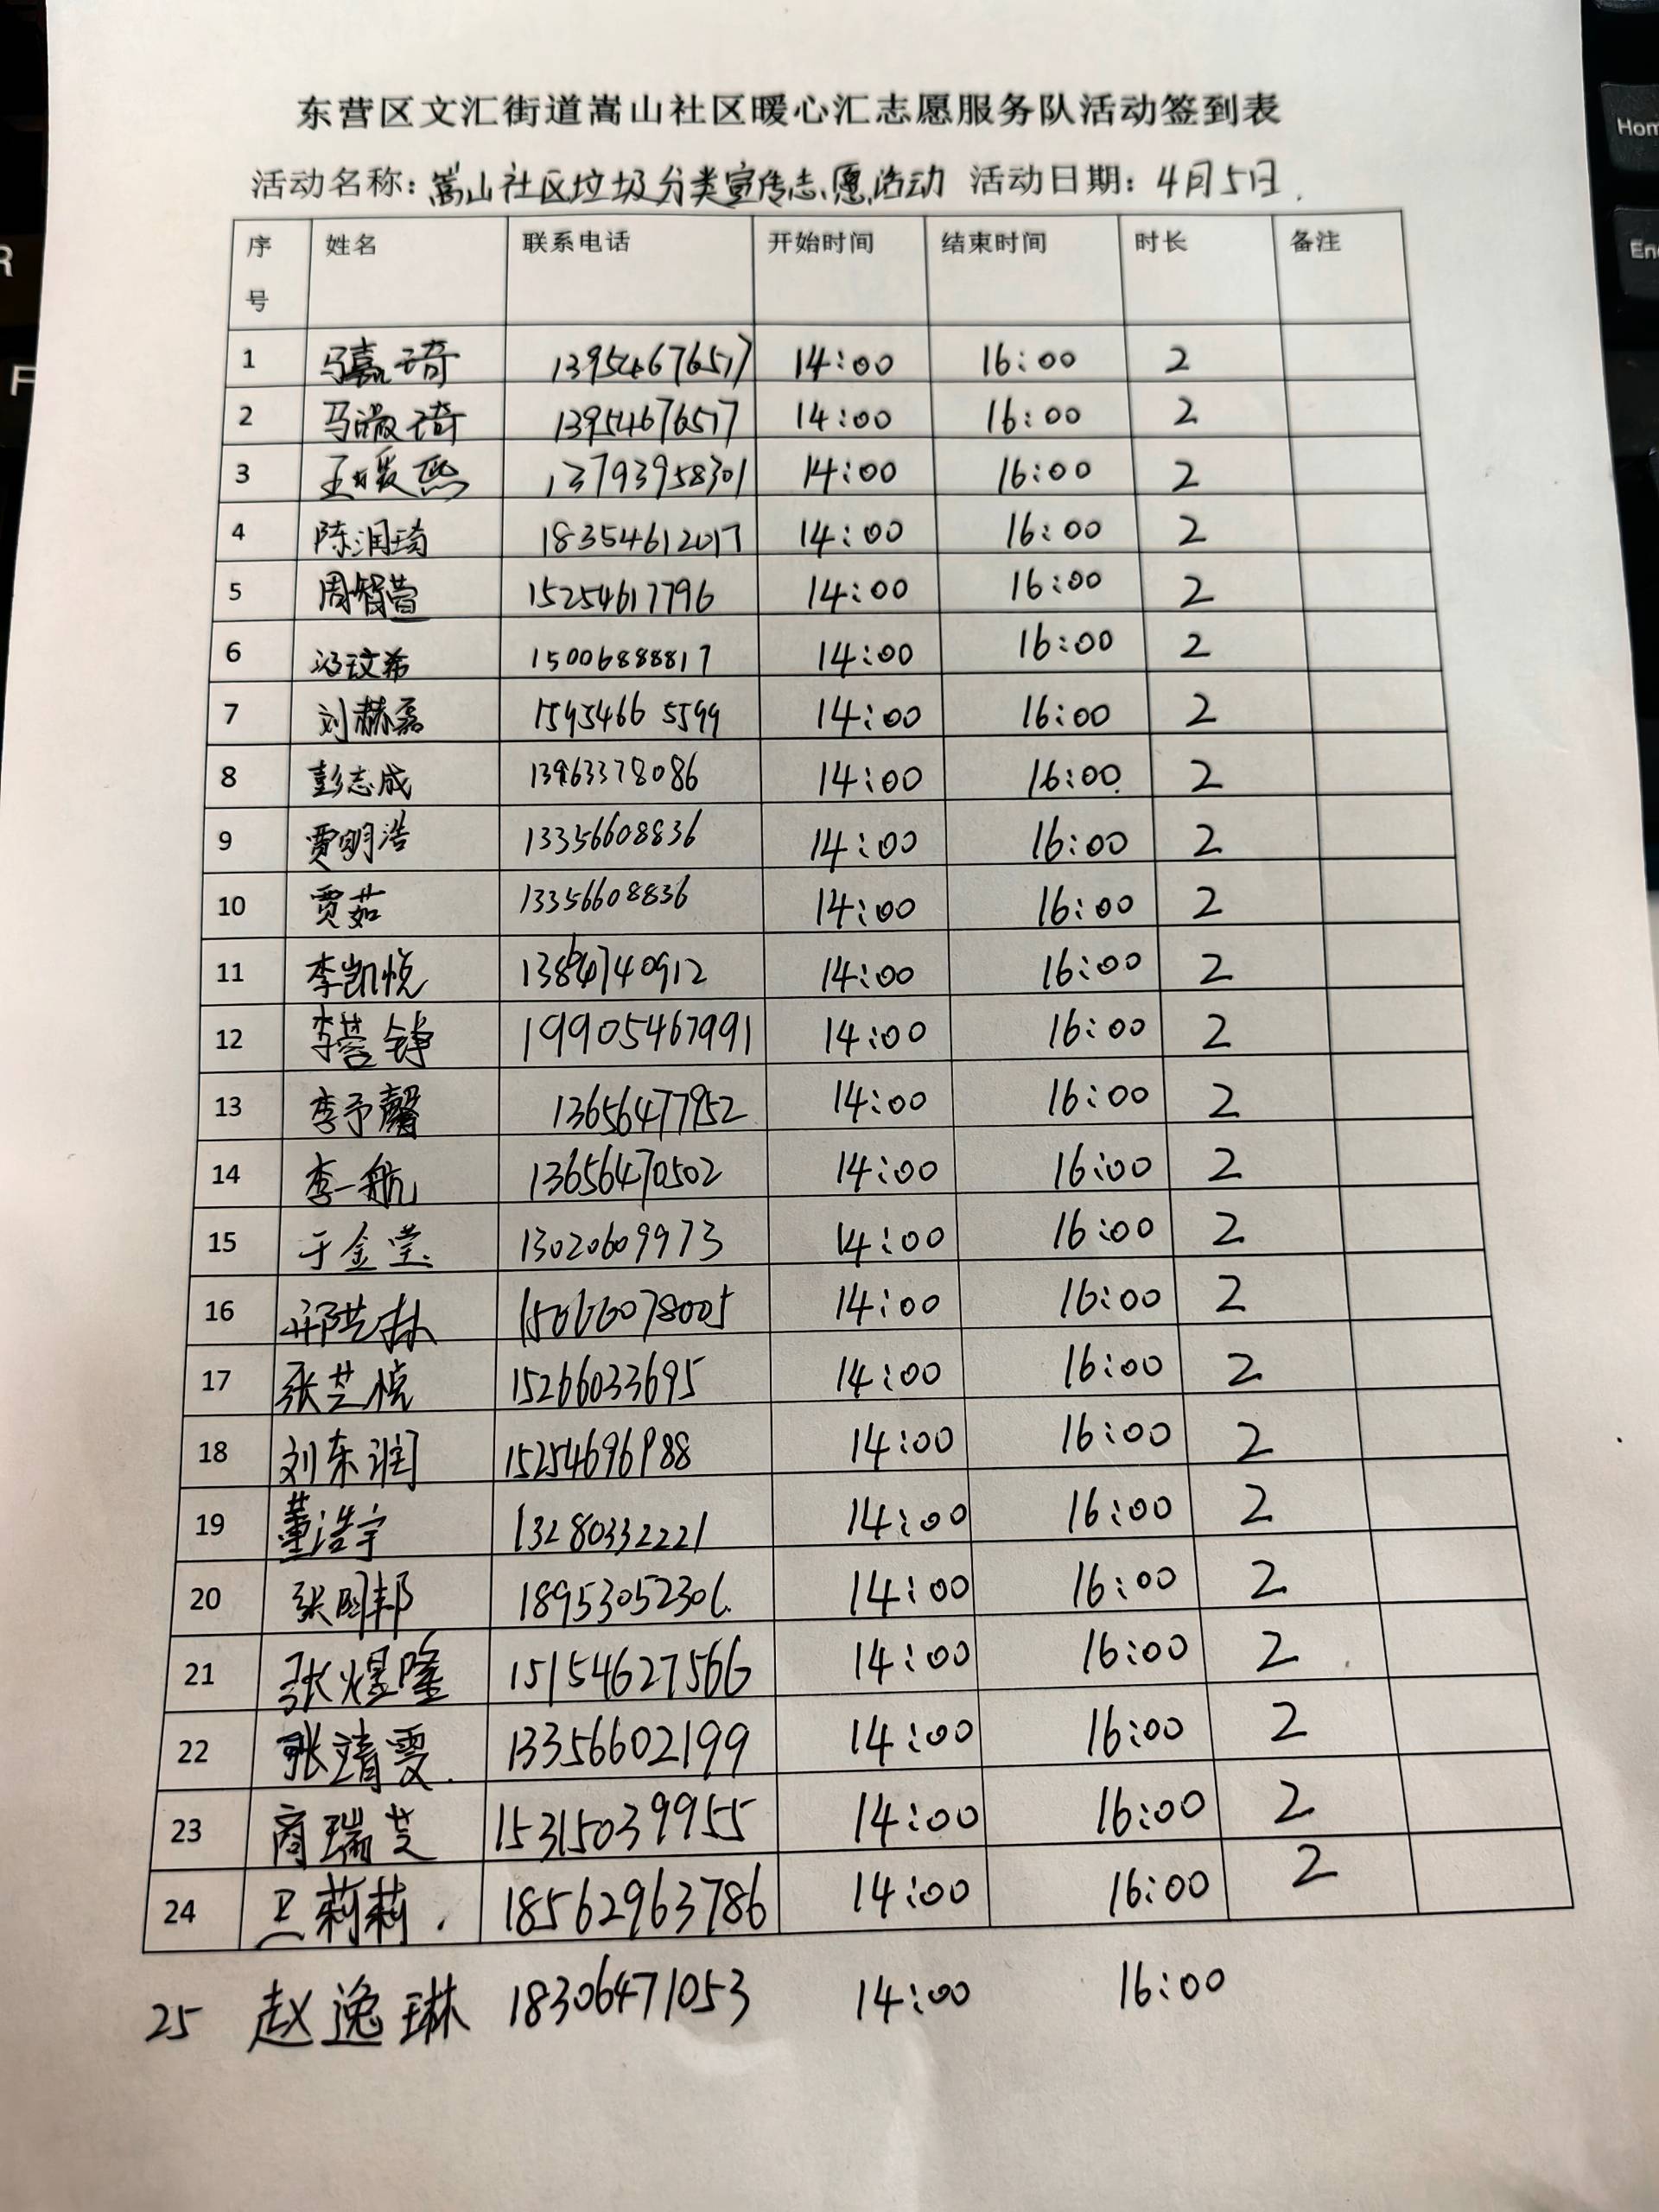 东营区文汇街道嵩山社区暖心汇志愿服务队活动签到表
活动名称：嵩山社区垃圾分类宣传志愿活动 活动日期：4月5日.
序号 姓名 联系电话 开始时间 结束时间 时长 备注
1 马嘉琦 13954676517 14:00 16:00 2
2 马淑琦 13954676517 14:00 16:00 2
3 王媛熙 13793958301 14:00 16:00 2
4 陈润琦 18354612017 14:00 16:00 2
5 周智萱 15254617796 14:00 16:00 2
6 冯玟希 15006888817 14:00 16:00 2
7 刘赫磊 15954665599 14:00 16:00 2
8 彭志成 13963378086 14:00 16:00 2
9 贾明浩 13356608836 14:00 16:00 2
10 贾茹 13356608836 14:00 16:00 2
11 李凯悦 14:00 16:00 2
12 19905467991 14:00 16:00 2
13 李予馨 13656477952 14:00 16:00 2
14 李一航 13656470502 14:00 16:00 2
15 于金莹 13020609973 14:00 16:00 2
16 14:00 16:00 2
17 张芝悦 15266033695 14:00 16:00 2
18 刘东润 15254696988 14:00 16:00 2
19 董浩宇 13280332221 14:00 16:00 2
20 18953052306 14:00 16:00 2
21 张煜隆 15154627566 14:00 16:00 2
22 张靖雯 13356602199 14:00 16:00 2
23 商瑞芝 15315039955 14:00 16:00 2
24 卫莉莉 18562963786 14:00 16:00 2
25 赵逸琳 18306471053 14:00 16:00